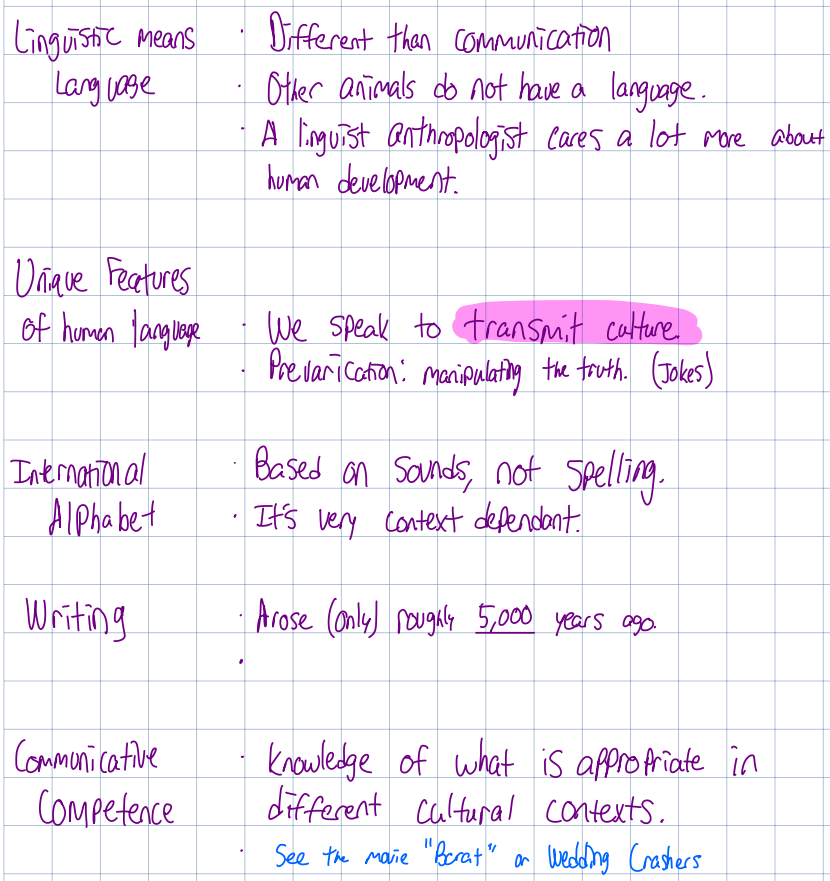 Linguistic means · Different than communication
Language · Other animals do not have a language.
· A linguist anthropologist cares a lot more about
human development.
Unique Features
of human language · We speak to transmit culture.
· Prevarication: manipulating the truth. (Jokes)
International · Based on sounds, not spelling.
Alphabet · It's very context dependant.
Writing · Arose (only) roughly 5,000 years ago.
·
Communicative · Knowledge of what is appropriate in
Competence different cultural contexts.
· See the movie "Borat" or Wedding Crashers